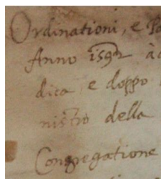 Ordinationi, e
Anno 1592 à
dica e doppo
nistro della
Congregatione